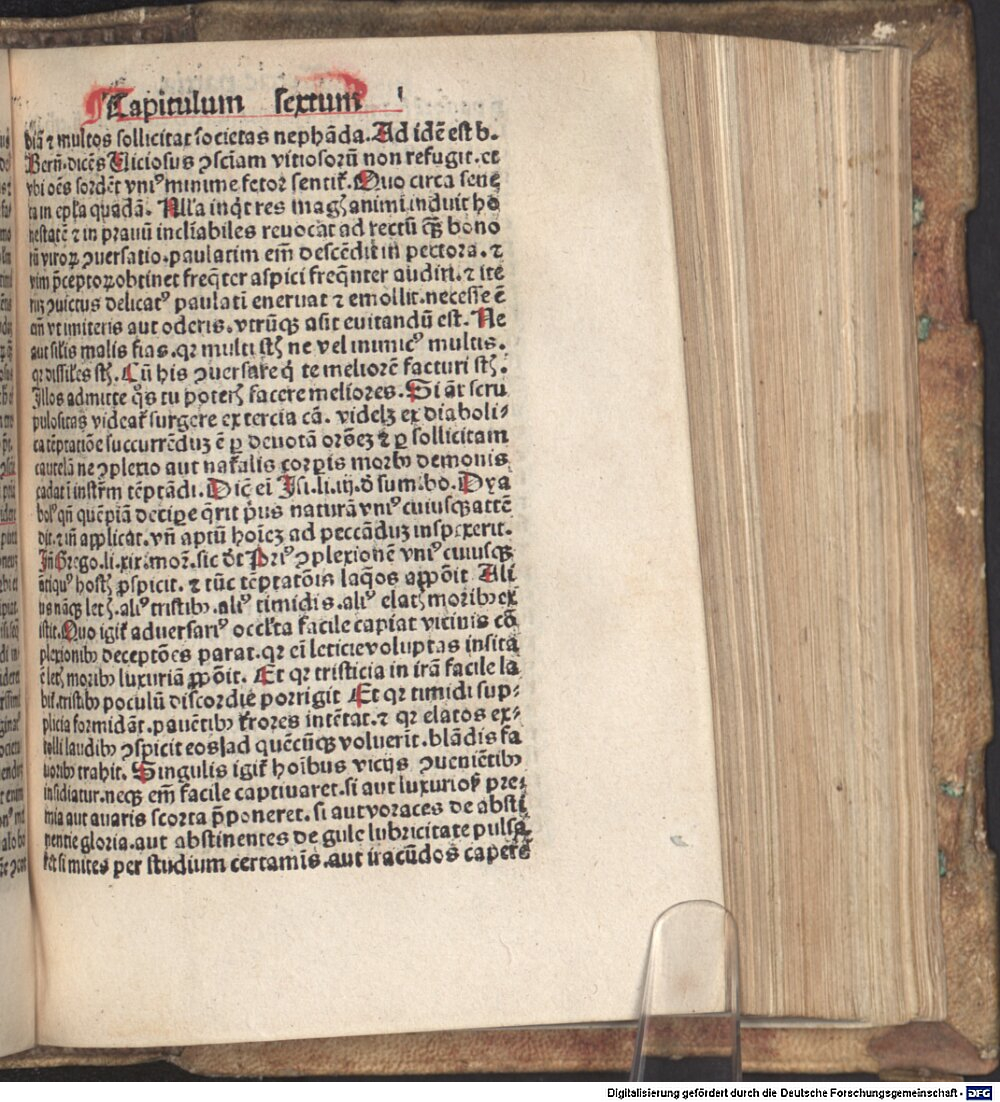 Capitulum sextum
biã ⁊ multos sollicitat societas nephãda. Ad idẽ est b.
Berñ. dicẽs Uiciosus ꝯsciam vitiosorũ non refugit. et
vbi oẽs sordẽt vniꝰ minime fetor sentit̃. Quo circa sene
ca in epl̃a quadã. Alla inq̇t res magꝫ animi induit ho
nestatẽ ⁊ in prauũ inclĩabiles reuocat ad rectũ qꝫ bono
rũ viroꝝ ꝯuersatio. paulatim em̃ descẽdit in pectora. ⁊
vim p̃ceptoꝝ obtinet freq̃ter aspici freq̃nter audiri. ⁊ ite
rũ ꝯuictus delicatꝰ paulatĩ eneruat ⁊ emollit. necesse ẽ
añ vt imiteris aut oderis. vtrũqꝫ aũt euitandũ est. Ne
aut sil̃is malis fias. qꝛ multi sũt ne vel inimicꝰ multis.
qꝛ dissil̃es sũt. Cũ his ꝯuersare q̇ te meliorẽ facturi sũt.
Illos admitte q̊s tu poteris facere meliores. Si aũt scru
pulositas videat̃ surgere ex tercia cã. videlꝫ ex diaboli-
ca tẽptatiõe succurrẽdũ ẽ ꝑ deuotã orõeꝫ ⁊ ꝑ sollicitam
cautelã ne ꝯplexio aut nat̃alis corꝑis morbꝰ demonis
cadat ĩ instr̃m tẽptãdi. Dic̃ eĩ Isi. li. iij. d̃ sum. bo. Dya
bolꝰ qñ quẽpiã decipe q̃rit p̃us naturã vniꝰcuiusqꝫ attẽ
dit. ⁊ ĩñ applicat. vñ aptũ hoĩeꝫ ad peccãdũ inspexerit.
Iñ Grego. li. xix. mor̃. sic dt̃ Priꝰ ꝯplexionẽ vniꝰcuiusqꝫ
ãtiquꝰ hostis ꝑspicit. ⁊ tũc tẽptatõis laq̃os apponit Ali
us nãqꝫ letis. aliꝰ tristibꝰ. aliꝰ timidis. aliꝰ elatis moribꝰ ex
istit. Quo igit̃ aduersariꝰ occl̃ta facile capiat vicinis cõ
plexionibꝰ deceptões parat. qꝛ eĩ leticie voluptas insita
ẽ letis moribꝰ luxuriã ꝓponit. Et qꝛ tristicia in irã facile la
bit̃. tristibꝰ poculũ discordie porrigit Et qꝛ timidi sup-
plicia formidãt. pauẽtibꝰ t̃rores intẽtat. ⁊ qꝛ elatos ex-
tolli laudibꝰ ꝯspicit eos ad quecũqꝫ voluerit. blãdis fa
uoribꝰ trahit. Singulis igit̃ hoĩbus vicijs ꝯueniẽtibꝰ
insidiatur. neqꝫ em̃ facile captiuaret. si aut luxuriosis pre
mia aut auaris scorta p̃poneret. si aut voraces de absti
nentie gloria. aut abstinentes de gule lubricitate pulsa
ret. si mites per studium certamĩs. aut iracũdos capere